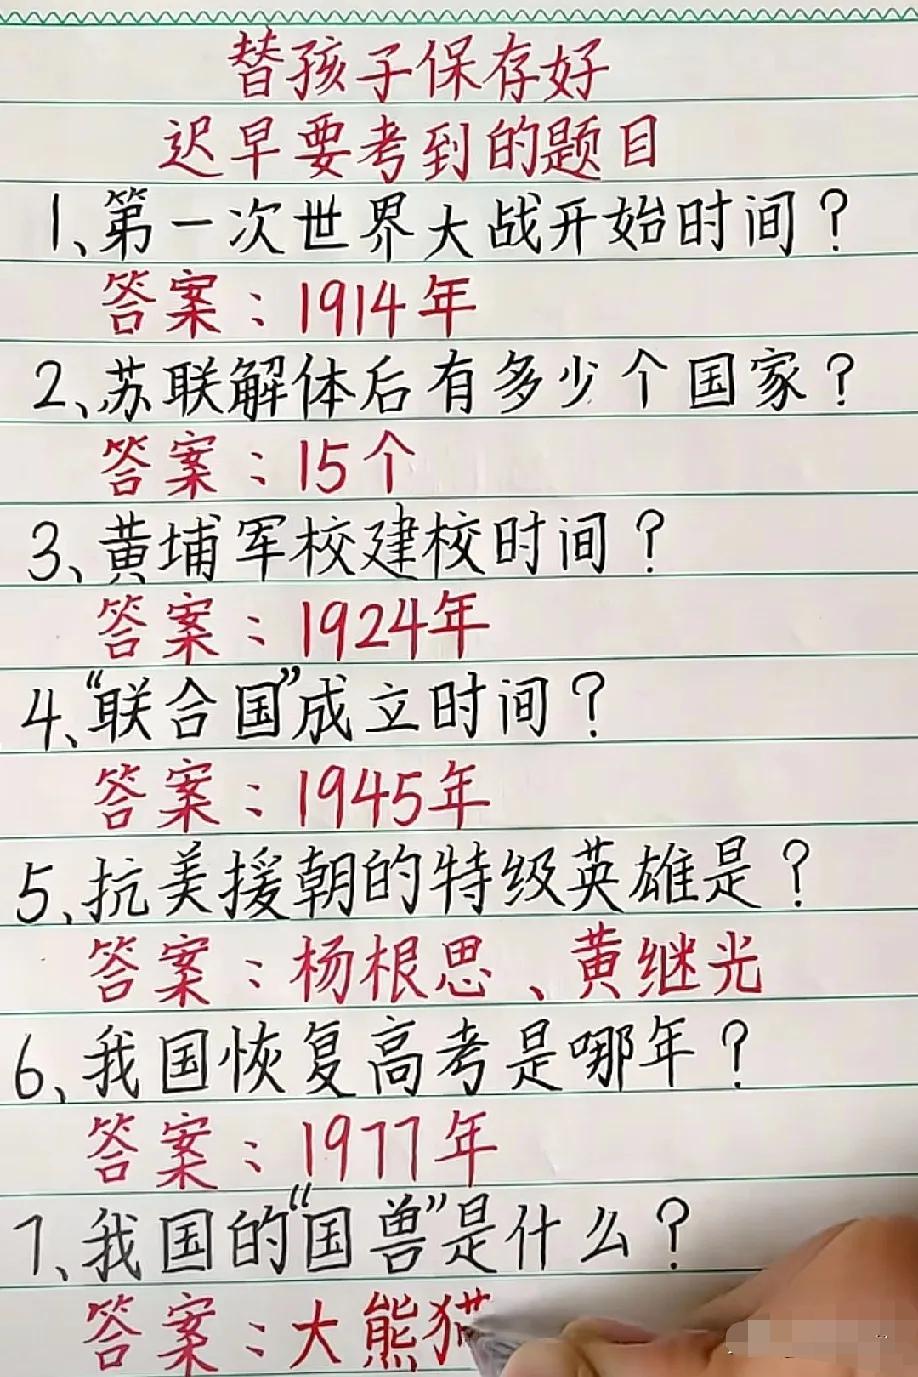 替孩子保存好
迟早要考到的题目
1、第一次世界大战开始时间？
答案：1914年
2、苏联解体后有多少个国家？
答案：15个
3、黄埔军校建校时间？
答案：1924年
4、“联合国”成立时间？
答案：1945年
5、抗美援朝的特级英雄是？
答案：杨根思、黄继光
6、我国恢复高考是哪年？
答案：1977年
7、我国的“国兽”是什么？
答案：大熊猫